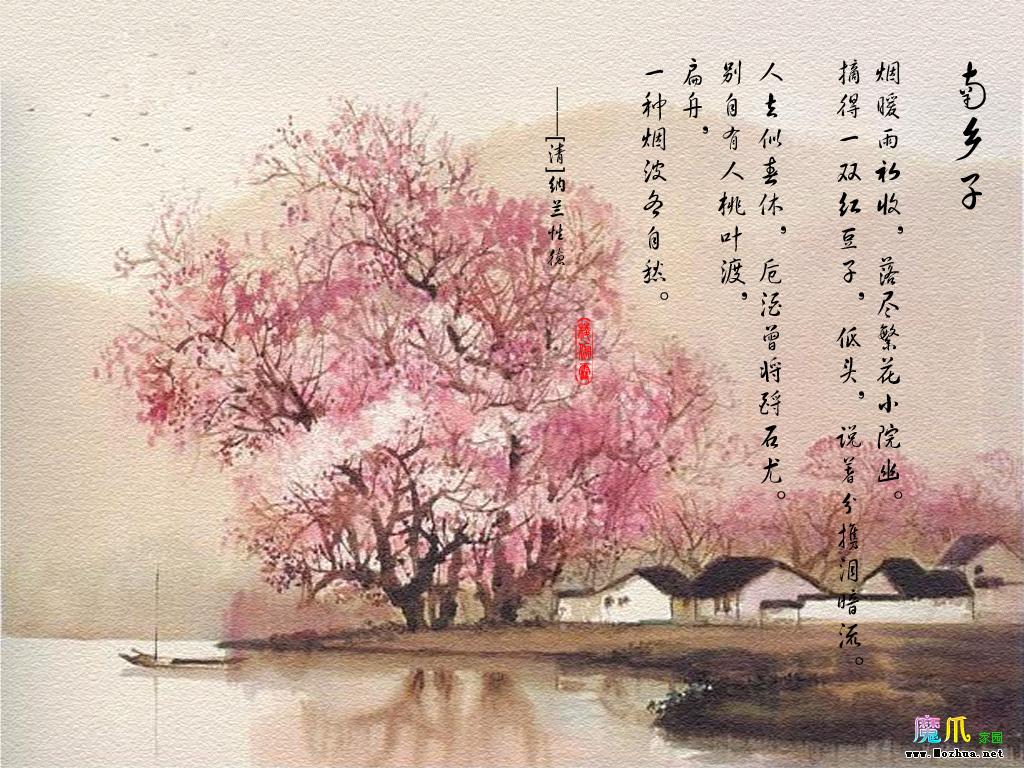 南乡子
烟暖雨初收，落尽繁花小院幽。
摘得一双红豆子，低头，说着分携泪暗流。
人去似春休，卮酒曾将酹石尤。
别自有人桃叶渡，
扁舟，
一种烟波各自愁。
——[清]纳兰性德
魔爪家园
www.Mozhua.net